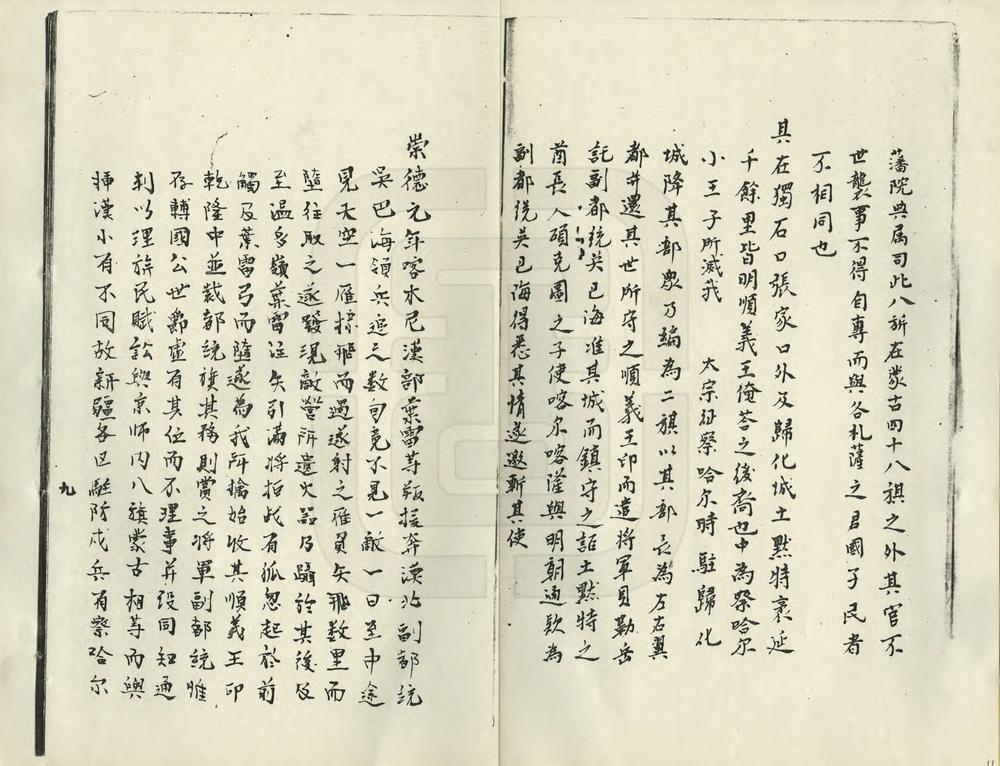 藩院典属司此八旂在蒙古四十八旗之外其官不
世襲事不得自專而與各札薩之君國子民者
不相同也
其在獨石口張家口外及歸化城土黙特袤延
千餘里皆明順義王俺荅之後裔也中為察哈尔
小王子所滅我 太宗征察哈尔時駐歸化
城降其部衆乃編為二旗以其部長為左右翼
都并還其世所守之順義王印而遣將軍貝勒岳
託副都統吳巴海准其城而鎮守之詎土黙特之
酋長人碩克圖之子使喀尔喀謹與明朝通欵為
副都统吳巴海得悉其情遂邀斬其使
崇德元年喀木尼漢部葉雷等叛援奔漠北副都統
吳巴海領兵追之数旬竟不見一敵一日至中途
見天空一雁摽飛而過遂射之雁負矢飛数里而
墮往取之遂發現敵營所遺火器乃躡於其後及
至温多嶺葉雷注矢引滿將拍战有狐忽起於前
觸及葉雷弓而墮遂為我所擒始收其順義王印
乾隆中並裁都統旗其務則賞之将軍副都統惟
存轉國公世爵虚有其位而不理事并设同知通
判以理旂民賦訟與京师内八旗蒙古相等而與
揷漢小有不同故新疆各区駐防戍兵有察哈尔
九